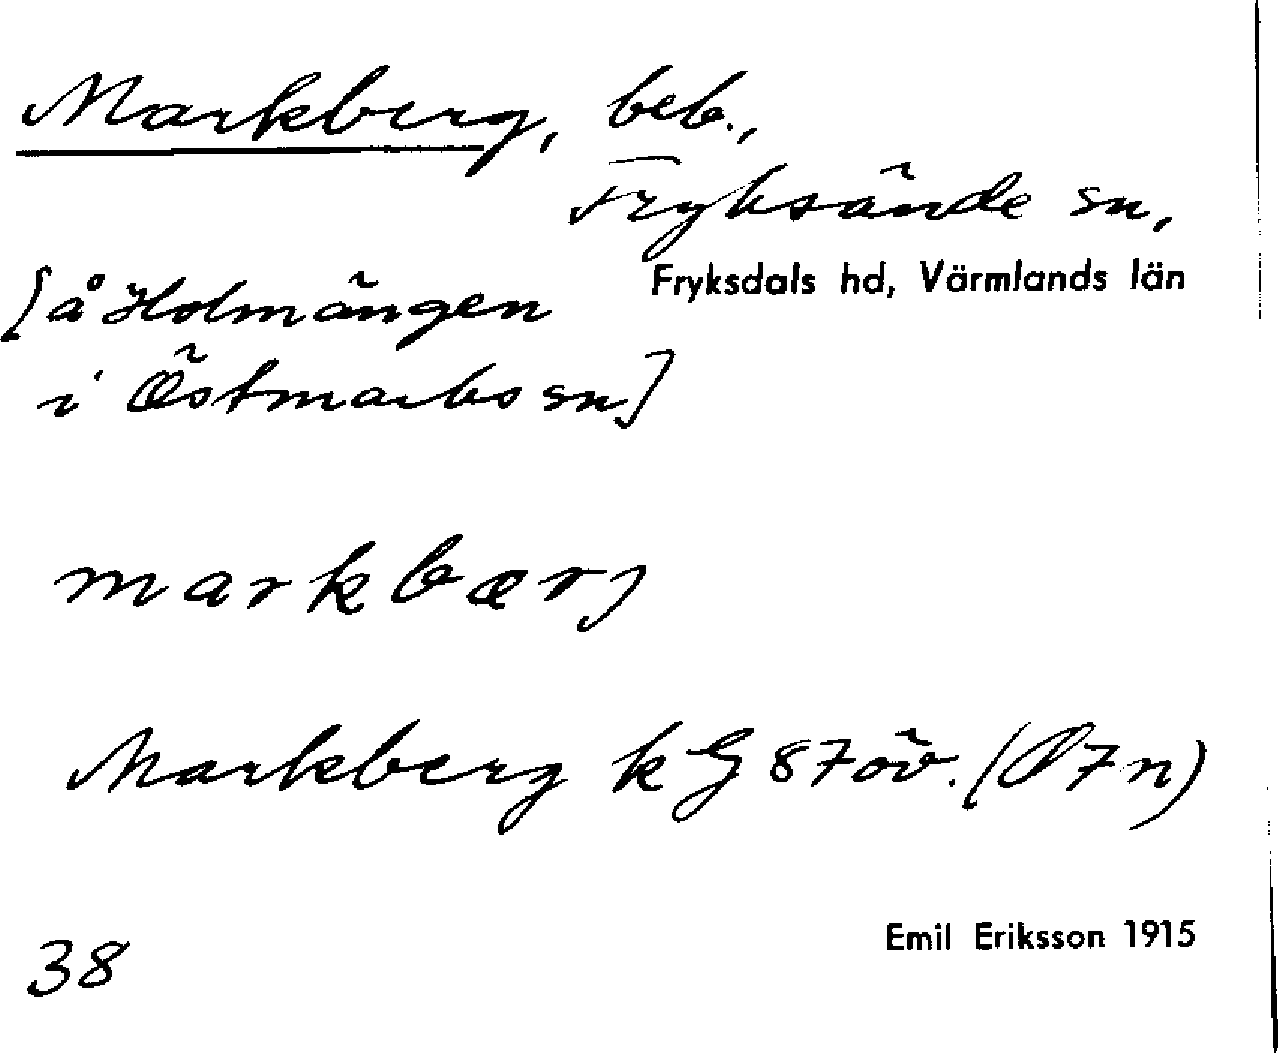 Markberg, beb.,
Fryksände sn,
Fryksdals hd, Värmlands län
[å Holmängen
i Östmarks sn]
markbærj
Markberg k G 87 öv. (Ö7n)
38
Emil Eriksson 1915